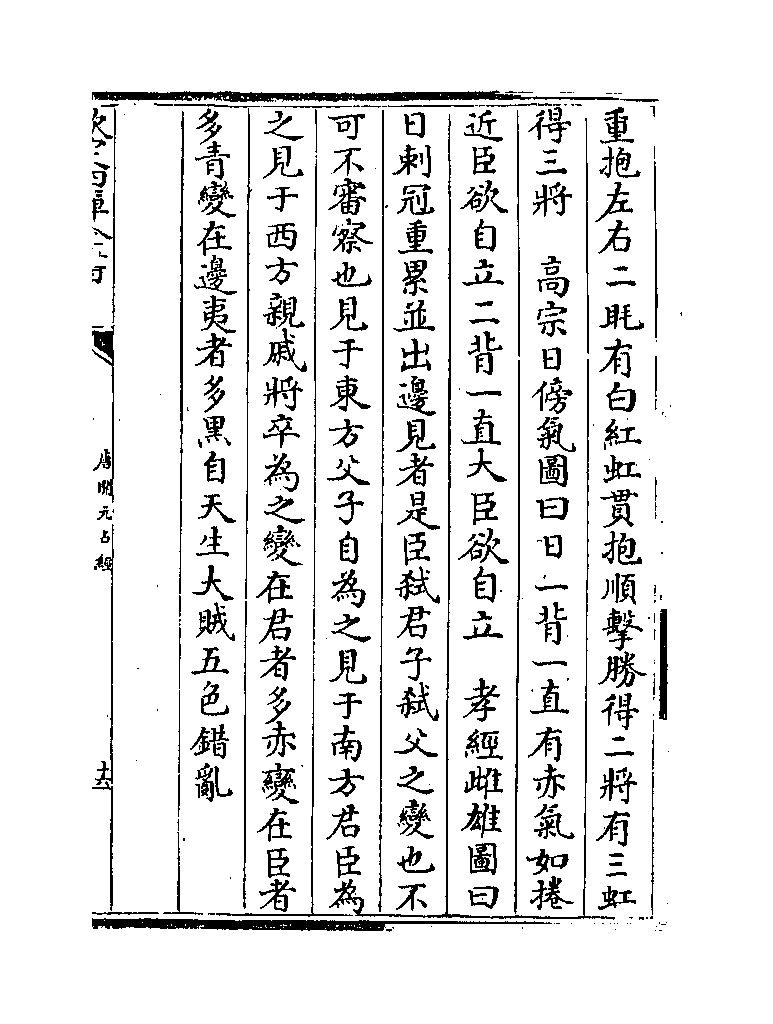 重抱左右二毦有白紅虹貫抱順擊勝得二將有三虹
得三將　高宗日傍氣圖曰日一背一直有赤氣如捲
近臣欲自立二背一直大臣欲自立　孝經雌雄圖曰
日刺冠重累並出邊見者是臣弑君子弑父之變也不
可不審察也見于東方父子自為之見于南方君臣為
之見于西方親戚將卒為之變在君者多赤變在臣者
多青變在邊夷者多黑自天生大賊五色錯亂
唐開元占經
十六